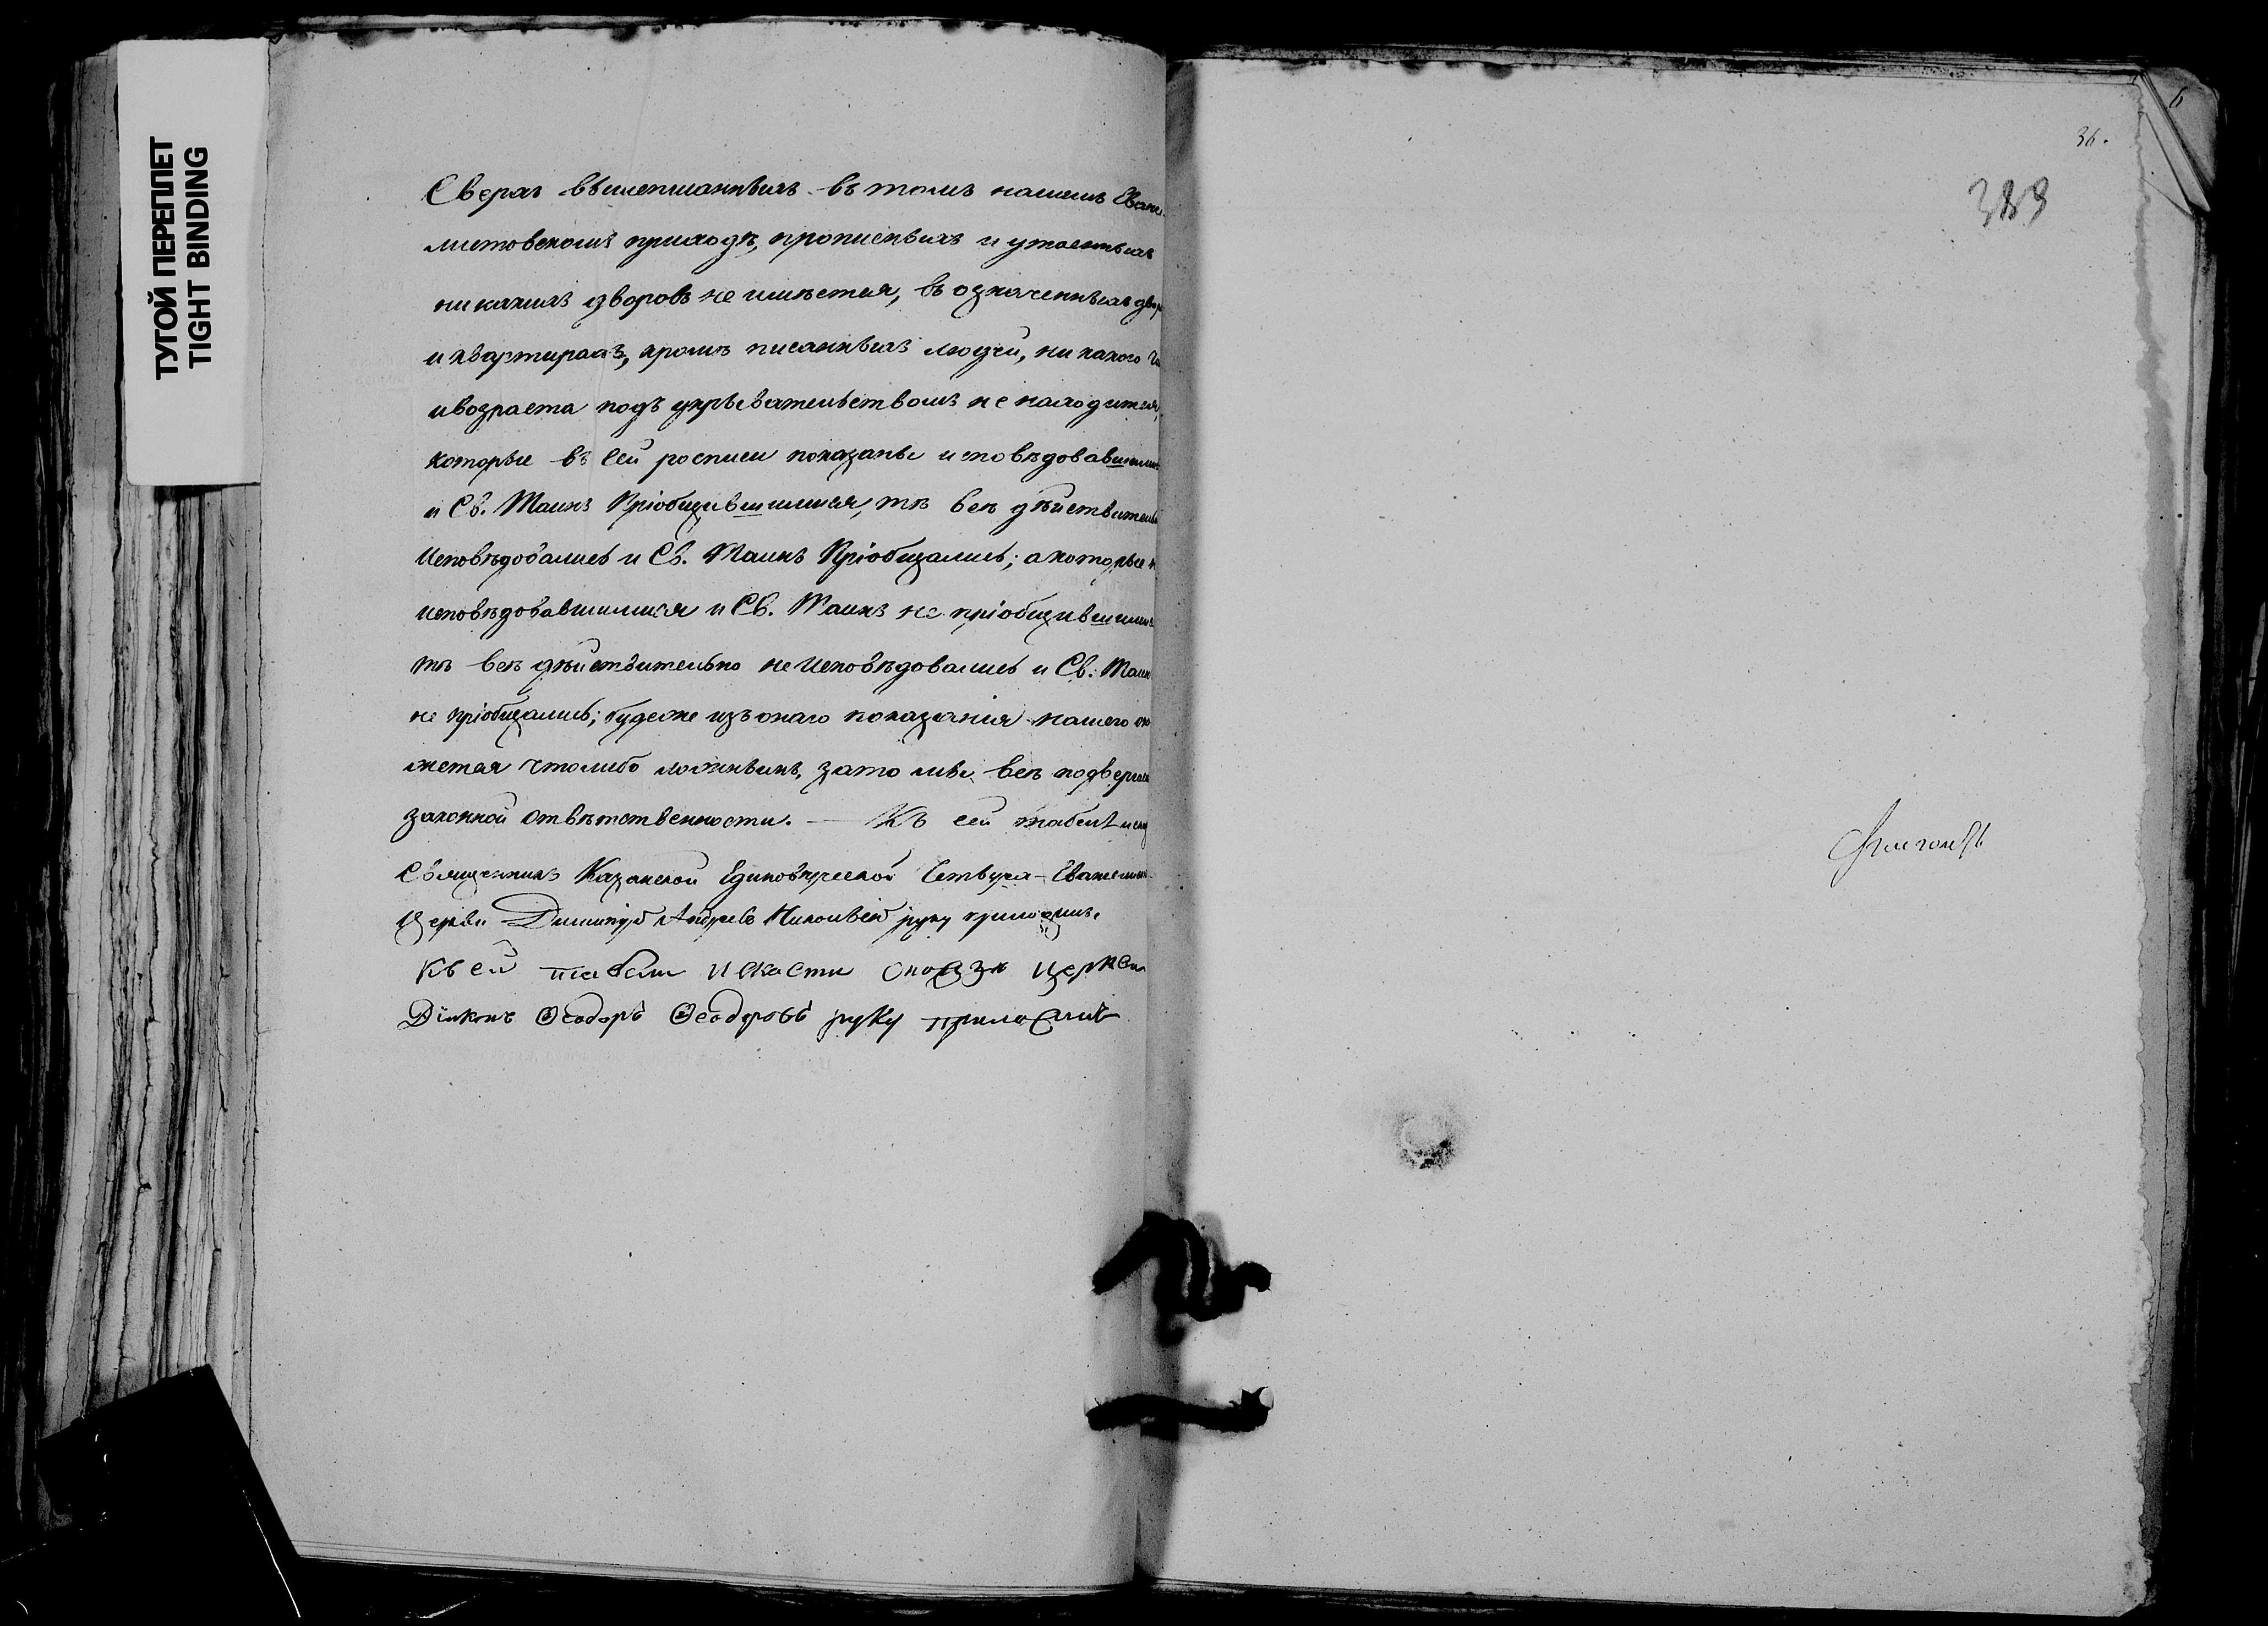 ТУГОЙ ПЕРЕПЛЕТ
TIGHT BINDING
Сверхъ вышеписанныхъ въ томъ нашемъ Еванге-
листовскомъ приходѣ, прописныхъ и утаенныхъ
никакихъ дворовъ не имѣется, въ означенныхъ двор
и квартирахъ, кромѣ писанныхъ людей, никакого
и возраста подъ укрывательствомъ не находится,
которые въ сей росписи показаны исповѣдовавшими
и Св. Таинъ Пріобщившимися, тѣ всѣ дѣйствитель
Исповѣдовались и Св. Таинъ Пріобщались; а которые н
исповѣдовавшимися и Св. Таинъ не пріобщившими
тѣ всѣ дѣйствительно не Исповѣдовались и Св. Таин
не пріобщались; буде же изъ онаго показанія нашего ока
жется что либо ложнымъ, за то мы всѣ подверга
законной отвѣтственности. — Къ сей табели
Священникъ Казанской Единовѣрческой Четырех-Евангели
Церкви Димитрій Андреевъ руку приложилъ.
Къ сей табели церкви
Діаконъ Ѳеодоръ Ѳеодоровъ руку приложилъ
36.
6